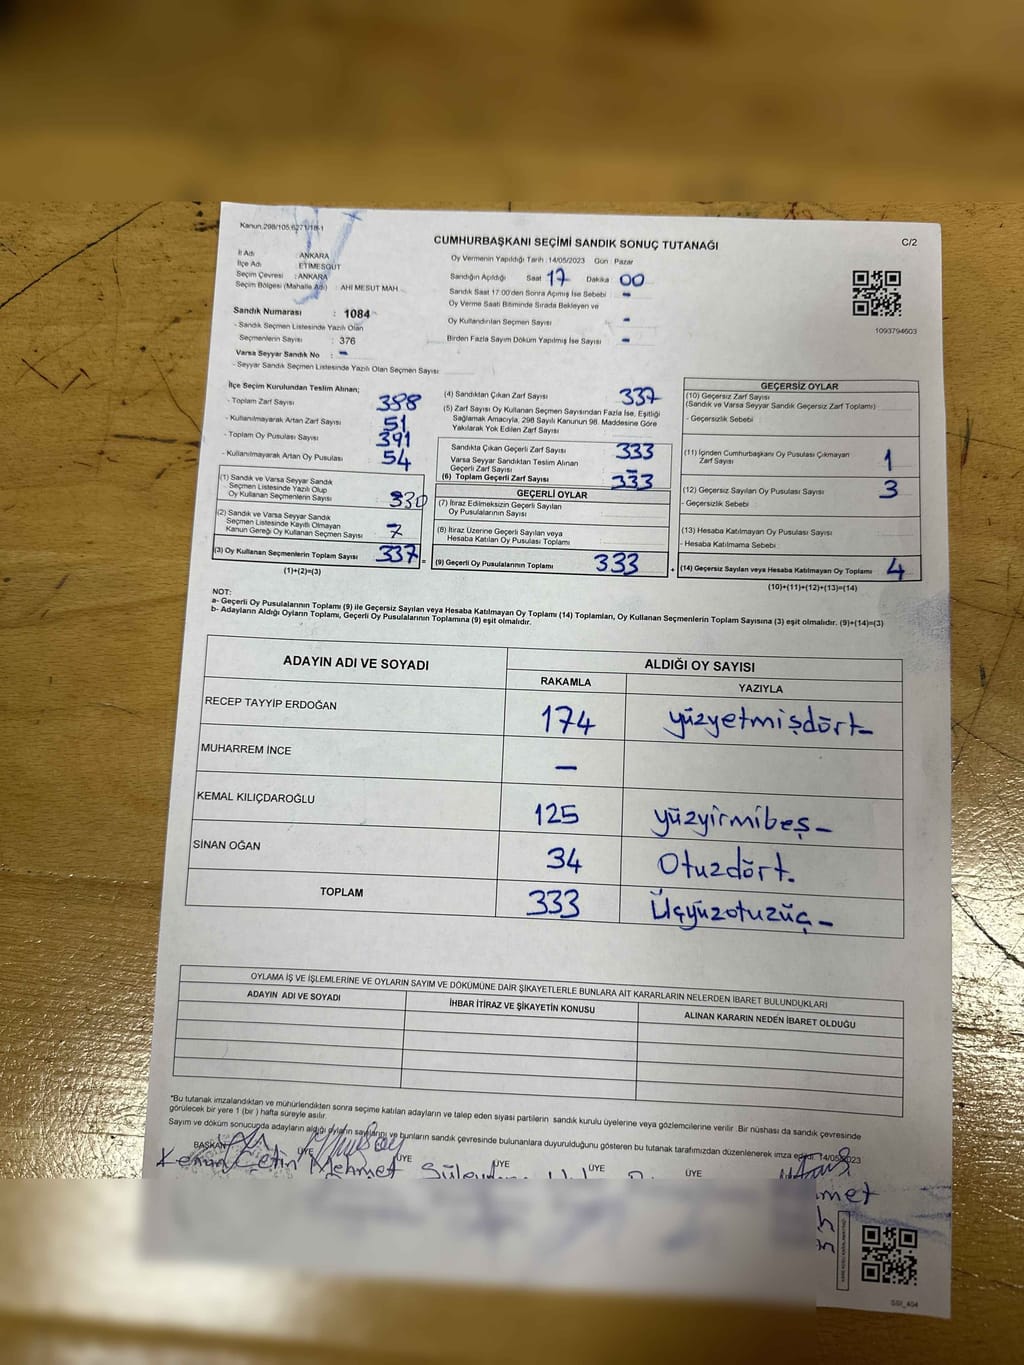 Kanun.298/105;6271/18-1
CUMHURBAŞKANI SEÇİMİ SANDIK SONUÇ TUTANAĞI
C/2
İl Adı : ANKARA
İlçe Adı : ETİMESGUT
Seçim Çevresi : ANKARA
Seçim Bölgesi (Mahalle Adı) : AHİ MESUT MAH.
Oy Vermenin Yapıldığı Tarih : 14/05/2023 Gün : Pazar
Sandığın Açıldığı Saat 17 Dakika 00
Sandık Saat 17:00'den Sonra Açımış İse Sebebi : -
Oy Verme Saati Bitiminde Sırada Bekleyen ve
Oy Kullandırılan Seçmen Sayısı : -
Birden Fazla Sayım Döküm Yapılmış İse Sayısı : -
1093794603
Sandık Numarası : 1084
- Sandık Seçmen Listesinde Yazılı Olan
Seçmenlerin Sayısı : 376
Varsa Seyyar Sandık No : -
- Seyyar Sandık Seçmen Listesinde Yazılı Olan Seçmen Sayısı:
İlçe Seçim Kurulundan Teslim Alınan;
- Toplam Zarf Sayısı 388
- Kullanılmayarak Artan Zarf Sayısı 51
- Toplam Oy Pusulası Sayısı 391
- Kullanılmayarak Artan Oy Pusulası 54
(1) Sandık ve Varsa Seyyar Sandık
Seçmen Listesinde Yazılı Olup
Oy Kullanan Seçmenlerin Sayısı 330
(2) Sandık ve Varsa Seyyar Sandık
Seçmen Listesinde Kayıtlı Olmayan
Kanun Gereği Oy Kullanan Seçmen Sayısı 7
(3) Oy Kullanan Seçmenlerin Toplam Sayısı 337
(1)+(2)=(3)
(4) Sandıktan Çıkan Zarf Sayısı 337
(5) Zarf Sayısı Oy Kullanan Seçmen Sayısından Fazla İse, Eşitliği
Sağlamak Amacıyla, 298 Sayılı Kanunun 98. Maddesine Göre
Yakılarak Yok Edilen Zarf Sayısı
Sandıkta Çıkan Geçerli Zarf Sayısı 333
Varsa Seyyar Sandıktan Teslim Alınan
Geçerli Zarf Sayısı -
(6) Toplam Geçerli Zarf Sayısı 333
GEÇERLİ OYLAR
(7) İtiraz Edilmeksizin Geçerli Sayılan
Oy Pusulalarının Sayısı
(8) İtiraz Üzerine Geçerli Sayılan veya
Hesaba Katılan Oy Pusulası Toplamı
(9) Geçerli Oy Pusulalarının Toplamı 333
GEÇERSİZ OYLAR
(10) Geçersiz Zarf Sayısı
(Sandık ve Varsa Seyyar Sandık Geçersiz Zarf Toplamı)
- Geçersizlik Sebebi :
(11) İçinden Cumhurbaşkanı Oy Pusulası Çıkmayan
Zarf Sayısı 1
(12) Geçersiz Sayılan Oy Pusulası Sayısı 3
- Geçersizlik Sebebi :
(13) Hesaba Katılmayan Oy Pusulası Sayısı
- Hesaba Katılmama Sebebi :
(14) Geçersiz Sayılan veya Hesaba Katılmayan Oy Toplamı 4
(10)+(11)+(12)+(13)=(14)
NOT:
a- Geçerli Oy Pusulalarının Toplamı (9) ile Geçersiz Sayılan veya Hesaba Katılmayan Oy Toplamı (14) Toplamları, Oy Kullanan Seçmenlerin Toplam Sayısına (3) eşit olmalıdır. (9)+(14)=(3)
b- Adayların Aldığı Oyların Toplamı, Geçerli Oy Pusulalarının Toplamına (9) eşit olmalıdır.
ADAYIN ADI VE SOYADI ALDIĞI OY SAYISI
RAKAMLA YAZIYLA
RECEP TAYYİP ERDOĞAN 174 yüzyetmişdört-
MUHARREM İNCE -
KEMAL KILIÇDAROĞLU 125 yüzyirmibeş-
SİNAN OĞAN 34 Otuzdört-
TOPLAM 333 Üçyüzotuzüç-
OYLAMA İŞ VE İŞLEMLERİNE VE OYLARIN SAYIM VE DÖKÜMÜNE DAİR ŞİKAYETLERLE BUNLARA AİT KARARLARIN NELERDEN İBARET BULUNDUKLARI
ADAYIN ADI VE SOYADI İHBAR İTİRAZ VE ŞİKAYETİN KONUSU ALINAN KARARIN NEDEN İBARET OLDUĞU
"Bu tutanak imzalandıktan ve mühürlendikten sonra seçime katılan adayların ve talep eden siyasi partilerin sandık kurulu üyelerine veya gözlemcilerine verilir. Bir nüshası da sandık çevresinde
görülecek bir yere 1 (bir ) hafta süreyle asılır.
Sayım ve döküm sonucunda adayların aldığı oyların sayılarını ve bunların sandık çevresinde bulunanlara duyurulduğunu gösteren bu tutanak tarafımızdan düzenlenerek imza edildi. 14/05/2023
BAŞKAN ÜYE ÜYE ÜYE ÜYE ÜYE
Kenan Çetin Mehmet
SSİ_404